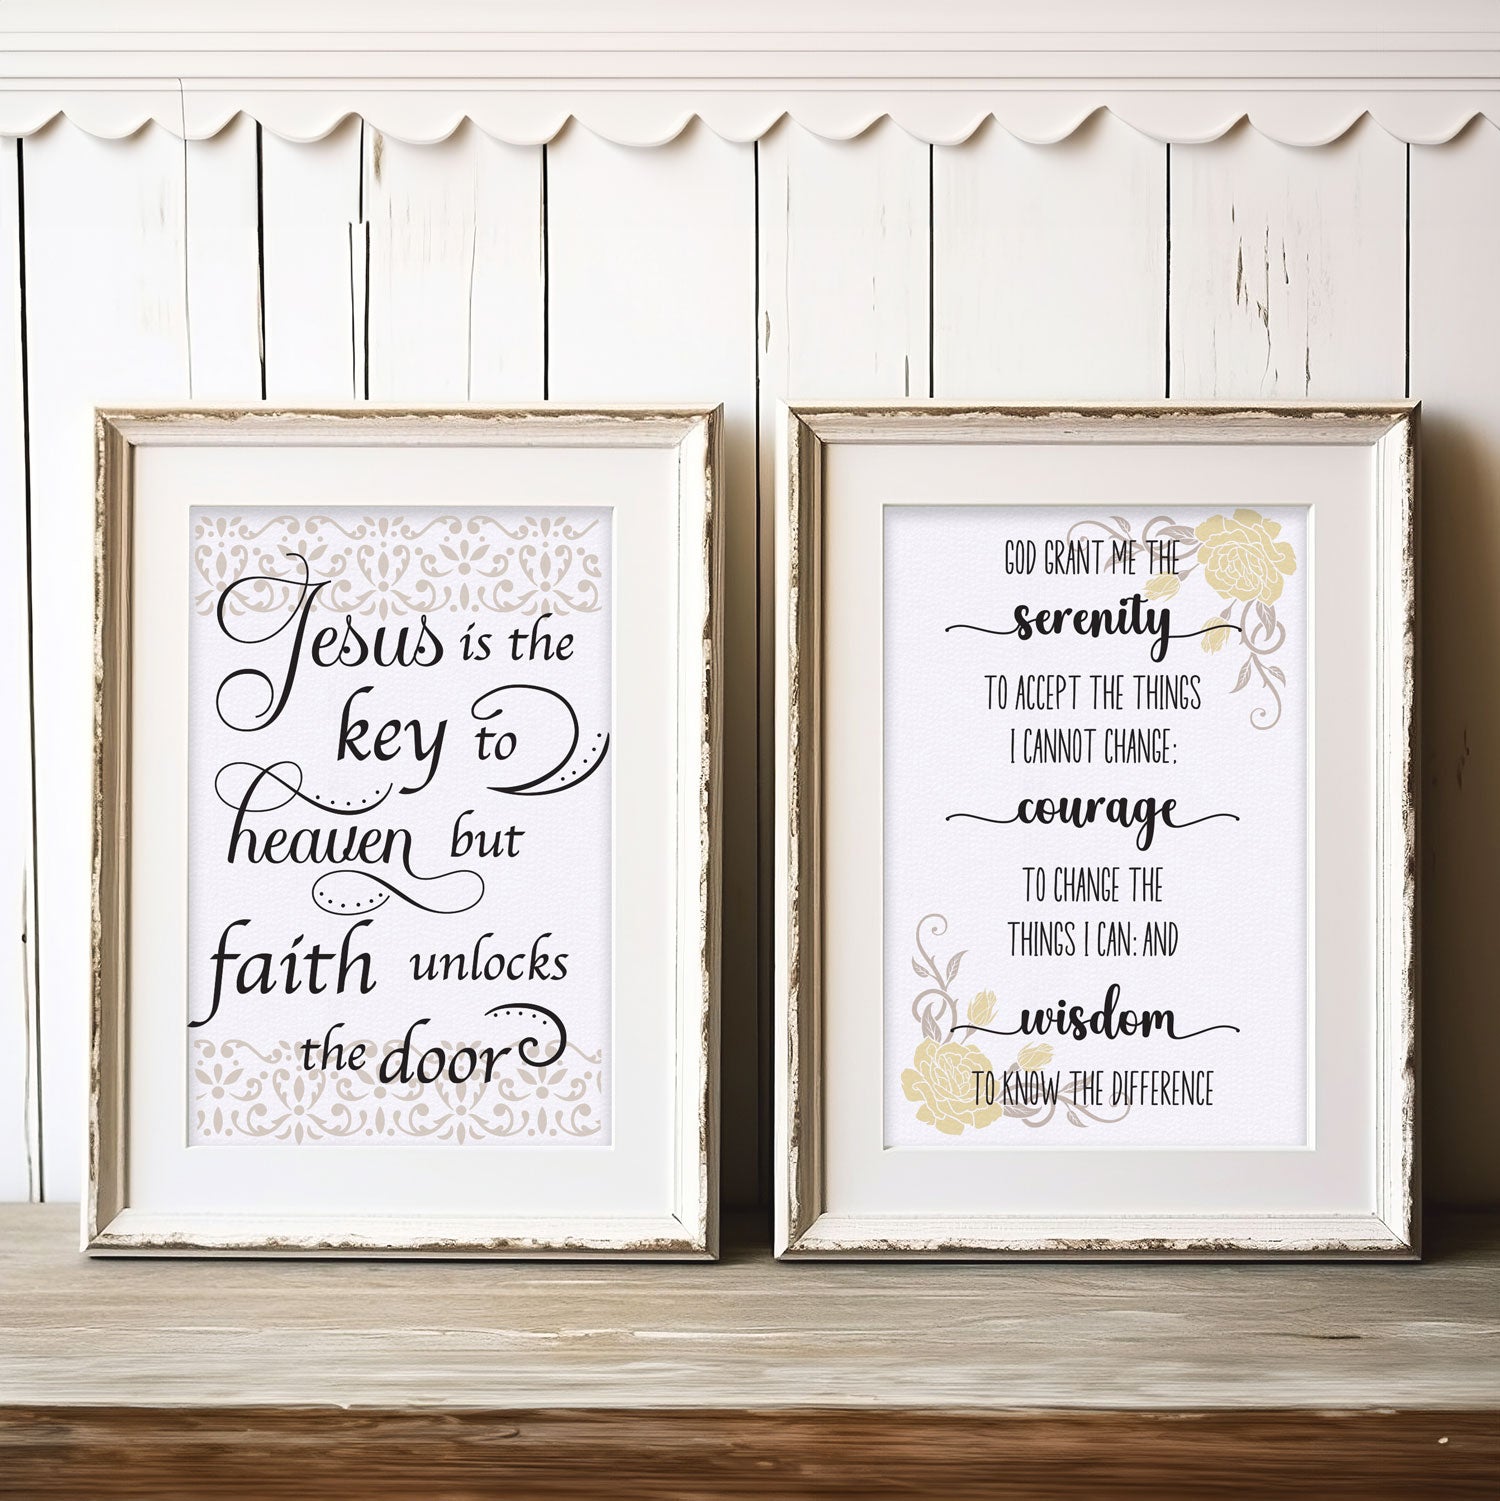 Jesus is the
key to
heaven but
faith unlocks
the door
GOD GRANT ME THE
serenity
TO ACCEPT THE THINGS
I CANNOT CHANGE;
courage
TO CHANGE THE
THINGS I CAN: AND
wisdom
TO KNOW THE DIFFERENCE